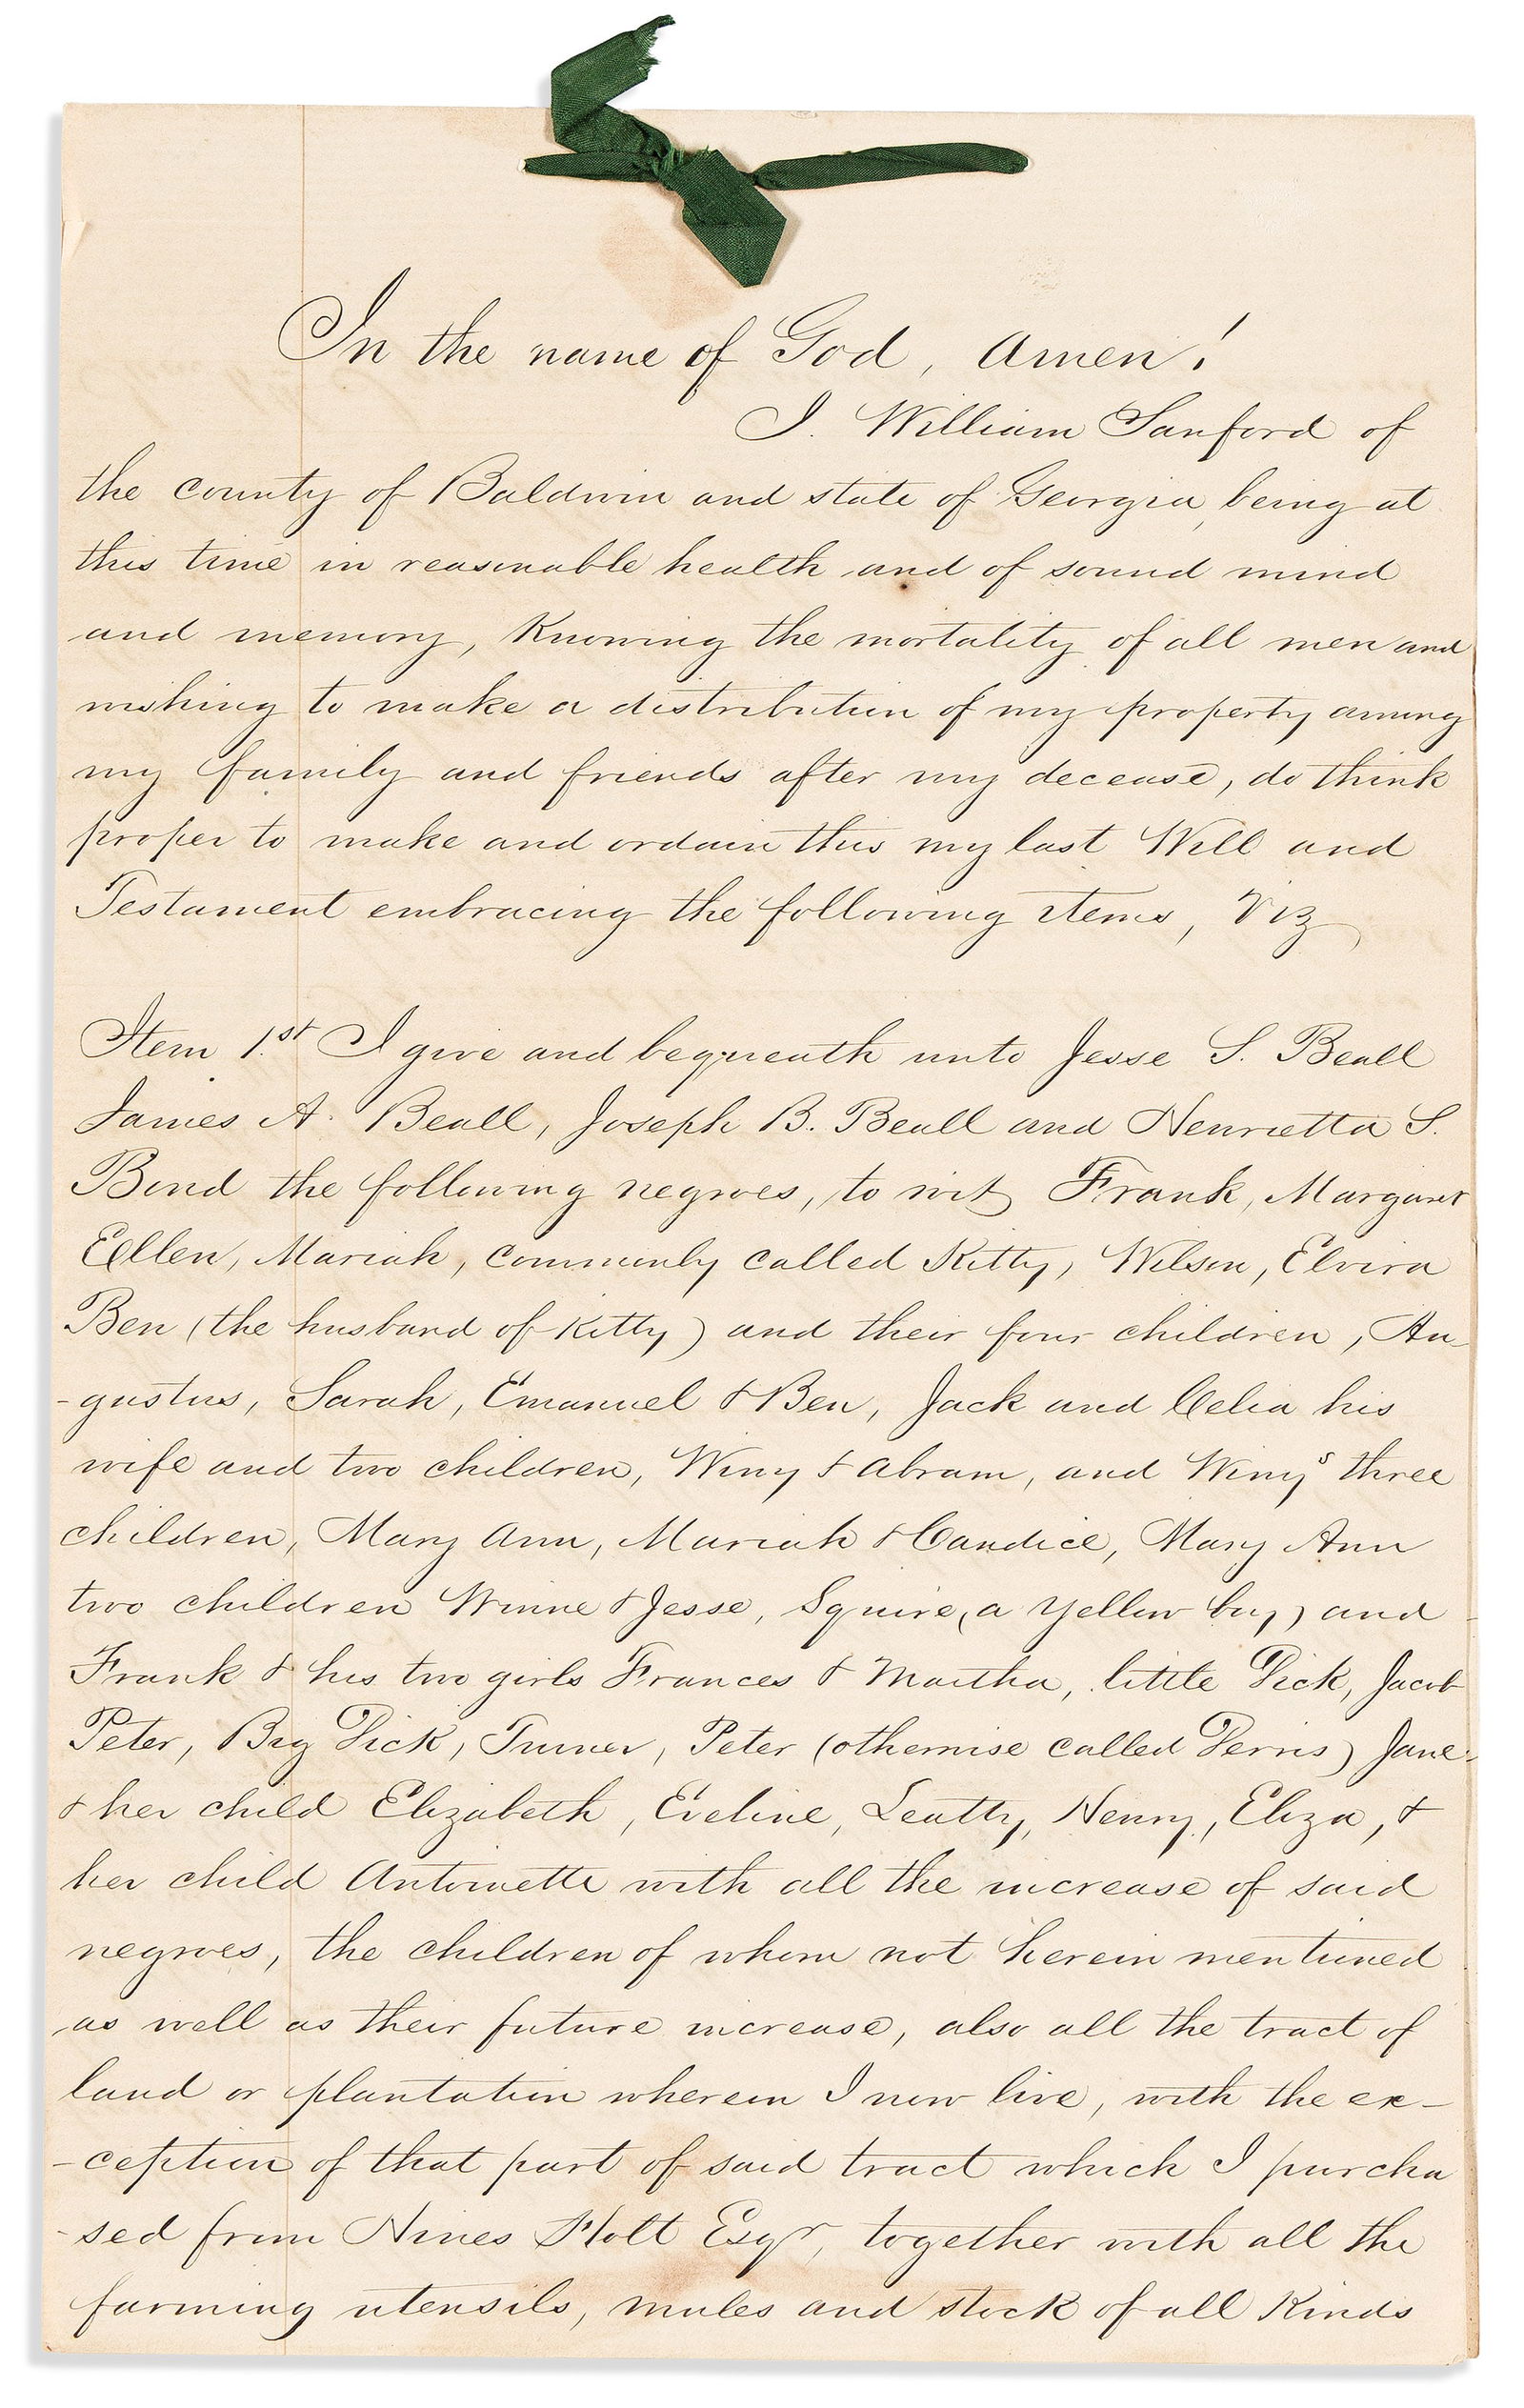 In the name of God, Amen!
I. William Sanford of
the county of Baldwin and state of Georgia, being at
this time in reasonable health and of sound mind
and memory, Knowing the mortality of all men and
wishing to make a distribution of my property among
my family and friends after my decease, do think
proper to make and ordain this my last Will and
Testament embracing the following items, Viz
Item 1.st I give and bequeath unto Jesse S. Beall
James A. Beall, Joseph B. Beall and Henrietta S.
Bond the following negroes, to wit Frank, Margaret
Ellen, Mariah, commonly called Kitty, Wilson, Elvira
Ben (the husband of Kitty) and their four children, Au-
-gustus, Sarah, Emanuel & Ben, Jack and Celia his
wife and two children, Winy & Abram, and Winy's three
children, Mary Ann, Mariah & Candice, Mary Ann
two children Winne & Jesse, Squire, (a yellow boy) and
Frank & his two girls Frances & Martha, little Dick, Jacob
Peter, Big Dick, Turner, Peter (otherwise called Perris) Jane
& her child Elizabeth, Eveline, Leatty, Henry, Eliza, &
her child Antoinette with all the increase of said
negroes, the children of whom not herein mentioned
as well as their future increase, also all the tract of
land or plantation wherein I now live, with the ex-
-ception of that part of said tract which I purcha
-sed from Hines Holt Esqr, together with all the
farming utensils, mules and stock of all Kinds